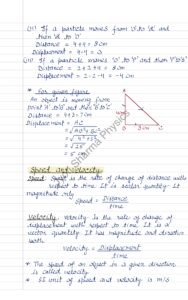 (ii) If a particle moves from 'O' to 'A' and
then 'A' to 'O'
Distance = 4+4 = 8 cm
Displacement = 4-4 = 0
(iii) If a particle moves 'O' to 'P' and then 'P' to 'B'
Displacement = 2-2-4 = -4 cm
* For given figure
An object is moving from
point 'A' to 'B' and then 'B' to 'C'
Distance = 4+3 = 7 cm
Displacement = AC
= √25
= 5 cm
A
B
3 cm
C
Speed and velocity
Speed: Speed is the rate of change of distance with
respect to time. It is scalar quantity. It
magnitude only
Speed = Distance
time
Velocity: Velocity is the rate of change of
displacement with respect to time. It is a
vector quantity. It has magnitude and direction
both
Velocity = Displacement
time
* The speed of an object in a given direction
is called velocity
* SI unit of speed and velocity is m/s
Sharma Physics